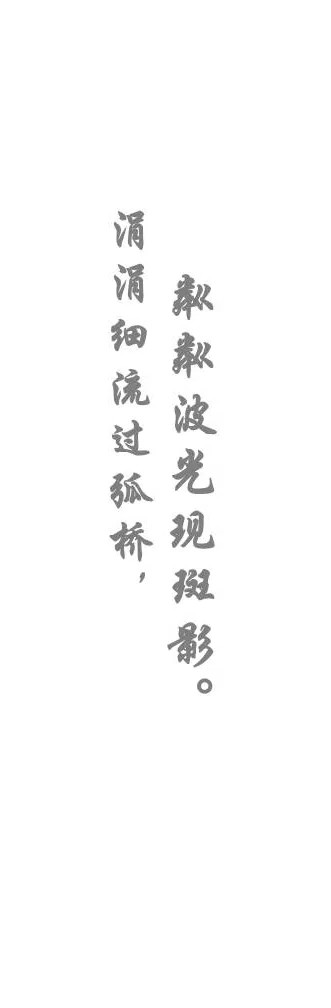 涓涓细流过弧桥，
粼粼波光现斑影。